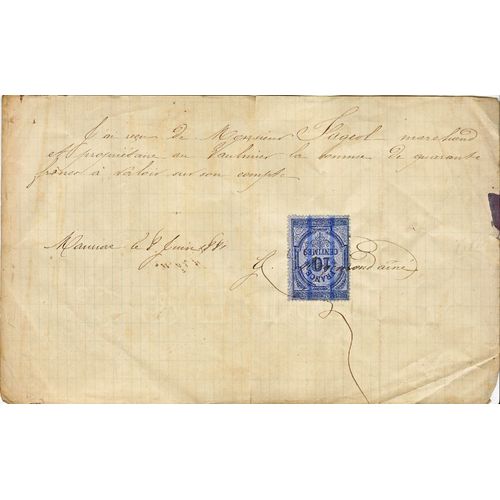 J'ai reçu de Monsieur Pageol marchand
et propriétaire au Vaulmier la somme de quarante
francs à valoir sur son compte
Mauriac le 8 Juin
10
CENTIMES
FRANCE
aîné